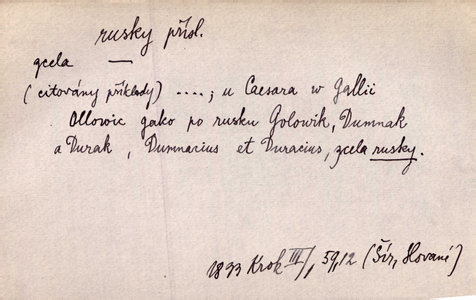 rusky přísl.
zcela —
(citovány příklady) ....; u Caesara w Gallii
Ollowic gako po rusku Golowik, Dumnak
a Durak, Dumnarius et Duracius, zcela rusky.
1893 Krok III/1, 59,12 (Šír, Slované)